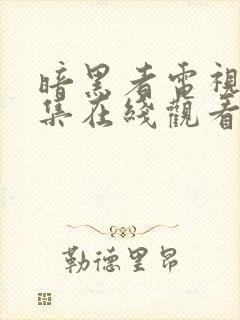 暗黑者電視
集在綫觀看
勒德里昂